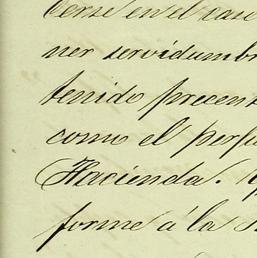 cerse en el caso
ner servidumbr
tenido presens
como el perju
Hacienda.
forme á la